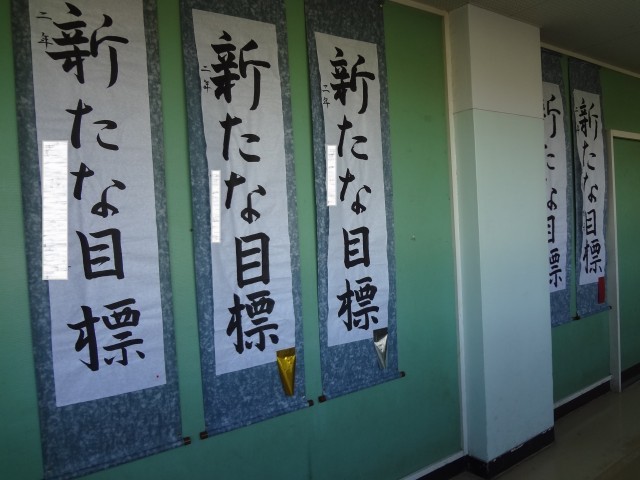 新たな目標
二年
新たな目標
二年
新たな目標
二年
新たな目標
新たな目標